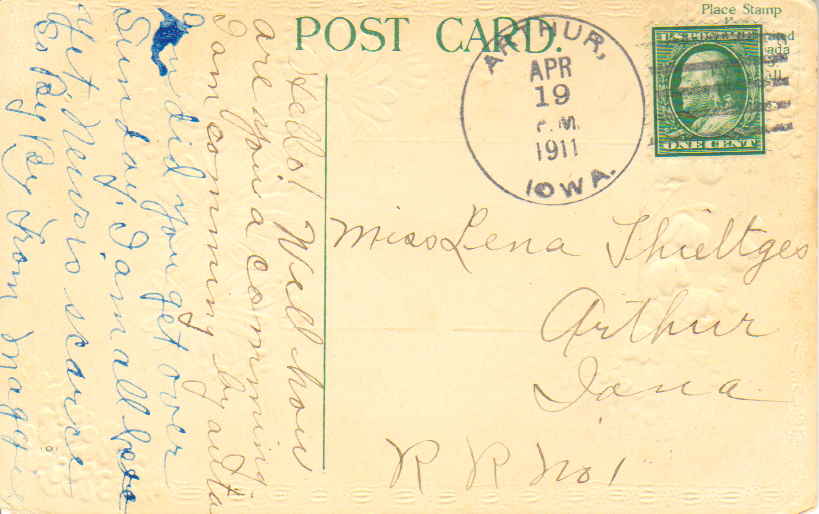 POST CARD.
Place Stamp
ARTHUR,
APR
19
P.M.
1911
IOWA.
U.S. POSTAGE
ONE CENT
Miss Lena Thieltges
Arthur
Iowa
R R No 1
Hello! Well how
are you a comming.
I am comming by
did you get over
Sunday, I am all
yet, News is scarce
So By By From Maggie